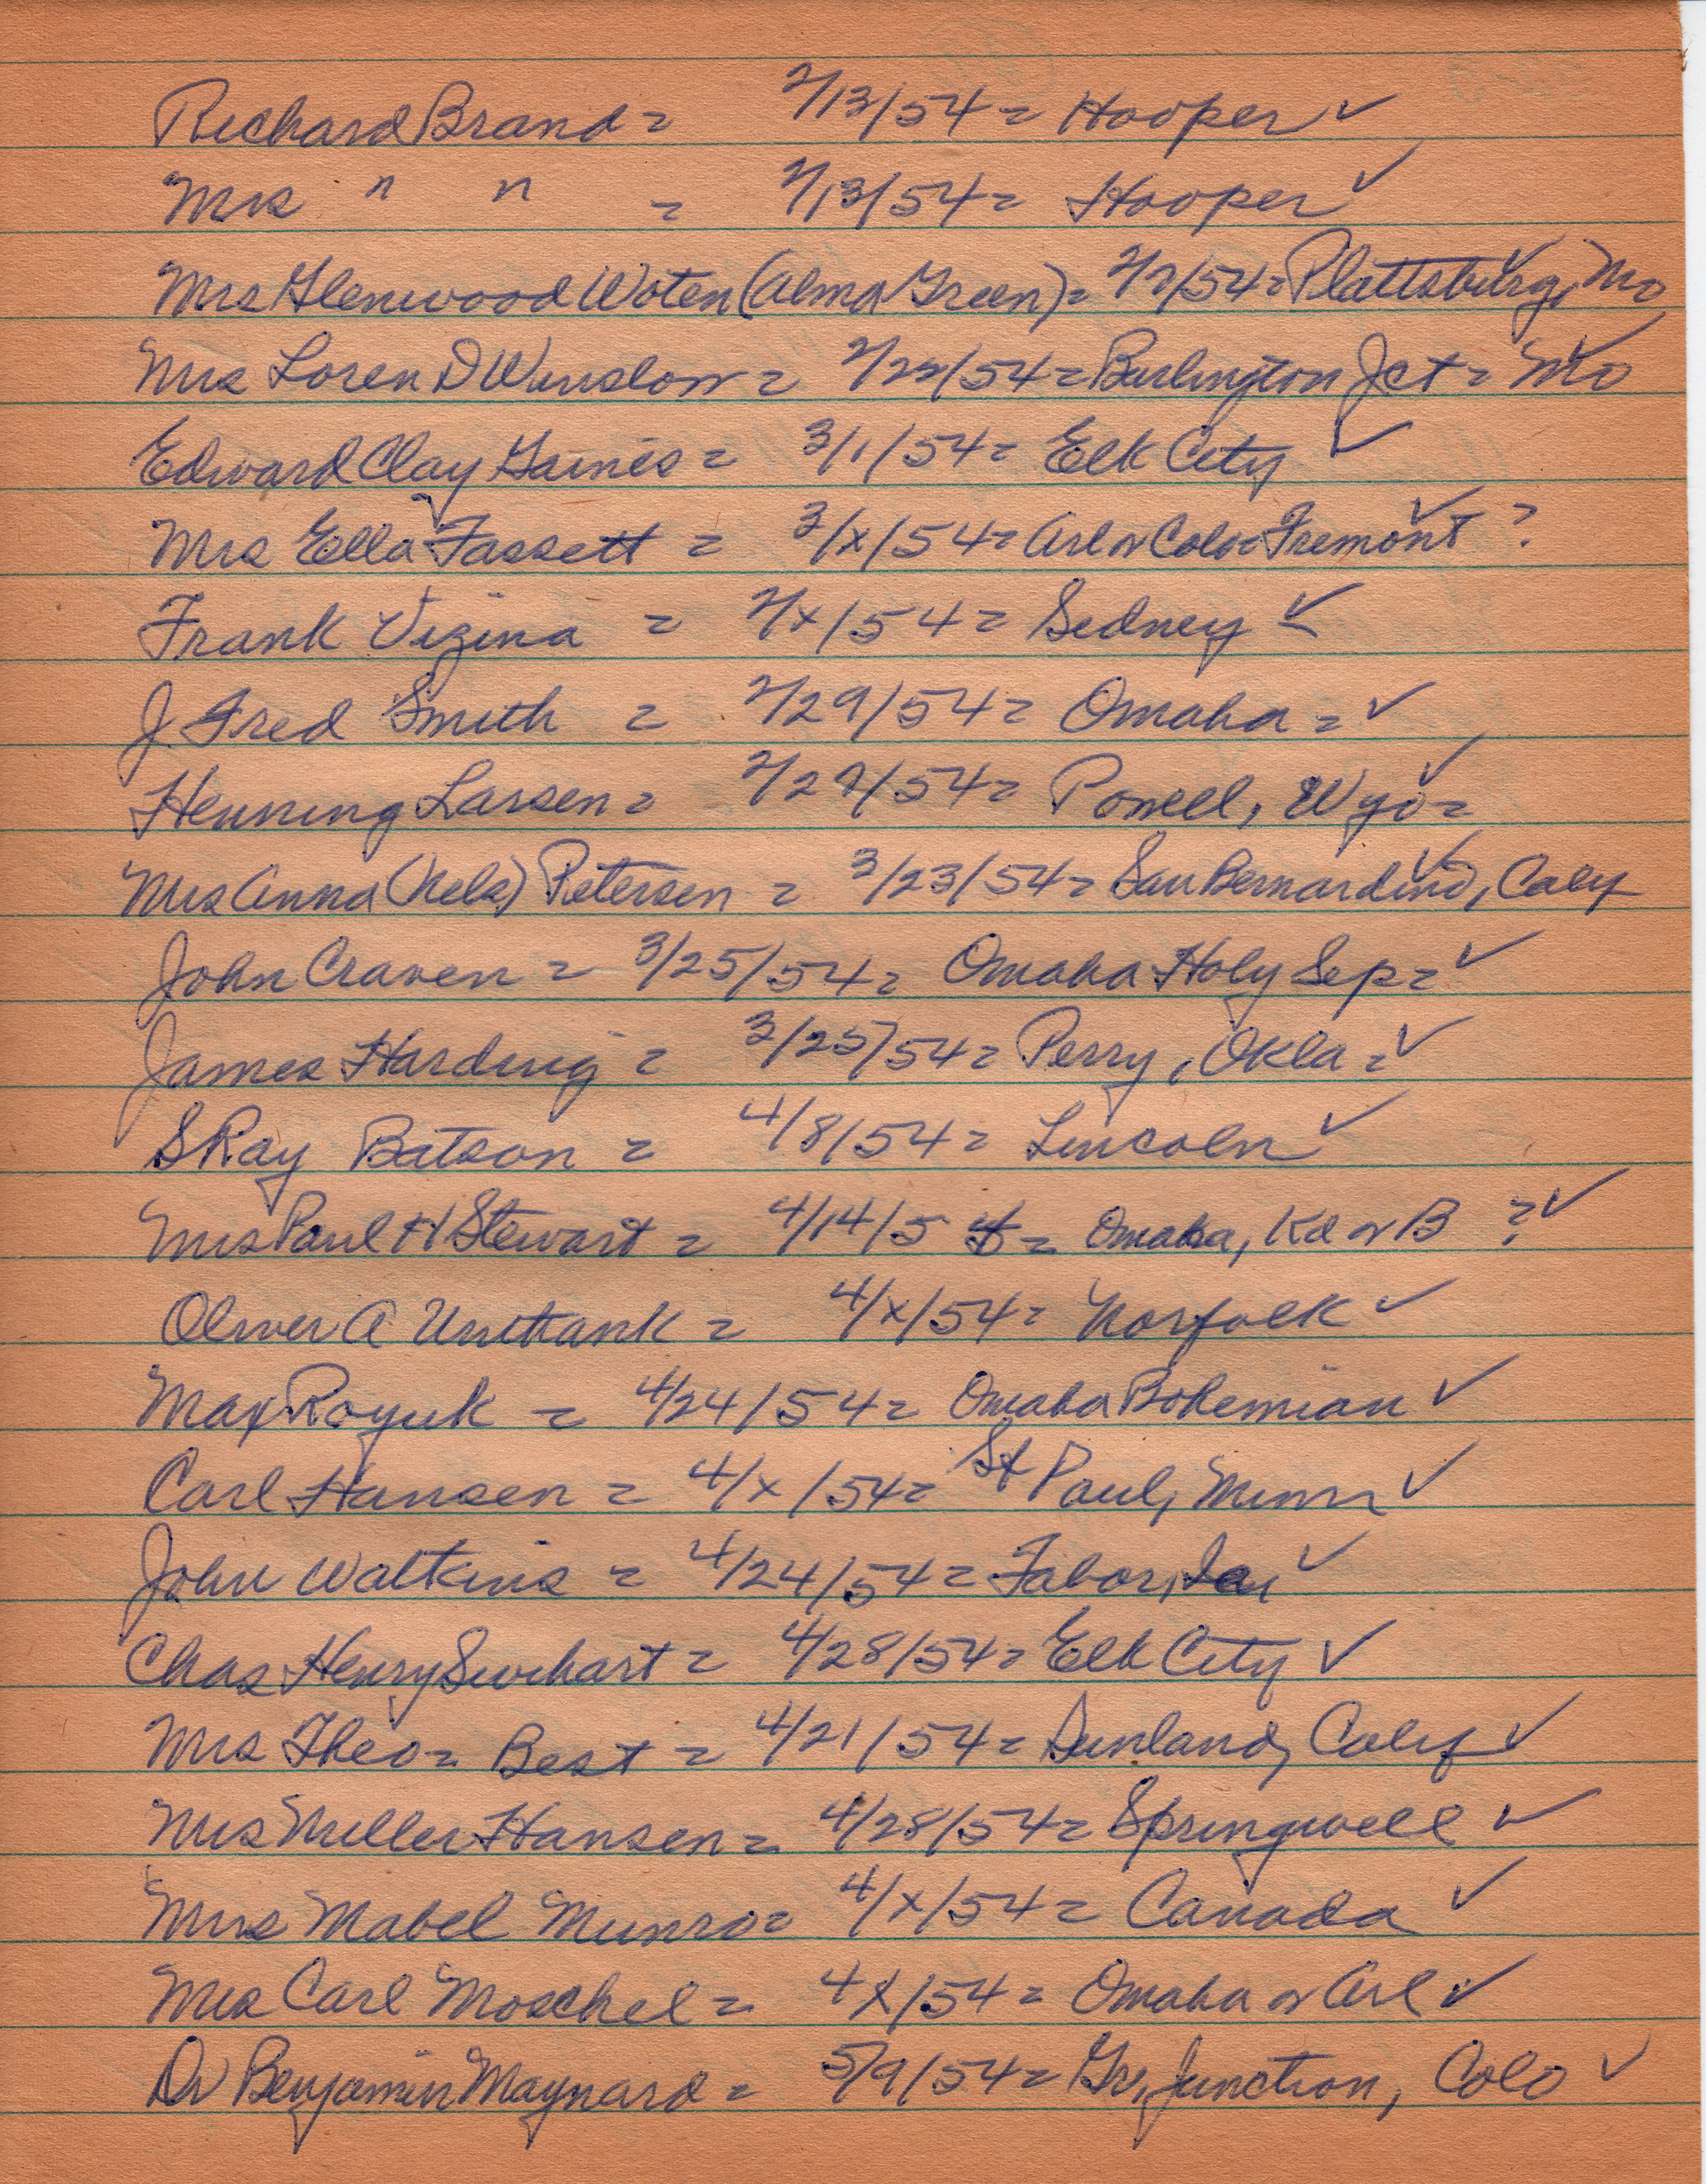 Richard Brand = 2/13/54 = Hooper ✓
Mrs " " = 2/13/54 = Hooper ✓
Mrs Glenwood Woten (Alma Green) = 2/2/54 = Plattsburg, Mo ✓
Mrs Loren D Winslow = 2/22/54 = Burlington Jct = Mo ✓
Edward Clay Gaines = 3/1/54 = Elk City ✓
Mrs Ella Fassett = 3/x/54 = Arl or Colo = Fremont ? ✓
Frank Vizina = 2/x/54 = Sidney ✓
J. Fred Smith = 2/29/54 = Omaha = ✓
Henning Larsen = 2/27/54 = Powell, Wyo = ✓
Mrs Anna (Nels) Petersen = 3/23/54 = San Bernardino, Calif ✓
John Craven = 3/25/54 = Omaha Holy Sep = ✓
James Harding = 3/25/54 = Perry, Okla = ✓
S Ray Batson = 4/8/54 = Lincoln ✓
Mrs Paul H Stewart = 4/14/54 = Omaha, Kd or B ? ✓
Oliver A Unthank = 4/x/54 = Norfolk ✓
Max Royuk = 4/24/54 = Omaha Bohemian ✓
Carl Hansen = 4/x/54 = St Paul, Minn ✓
John Watkins = 4/24/54 = Tabor, Ia ✓
Chas Henry Swihart = 4/28/54 = Elk City ✓
Mrs Theo = Best = 4/21/54 = Sunland, Calif ✓
Mrs Miller Hansen = 4/28/54 = Springwell ✓
Mrs Mabel Munro = 4/x/54 = Canada ✓
Mrs Carl Moschel = 4/x/54 = Omaha or Arl ✓
Dr Benjamin Maynard = 5/9/54 = Gr, Junction, Colo ✓